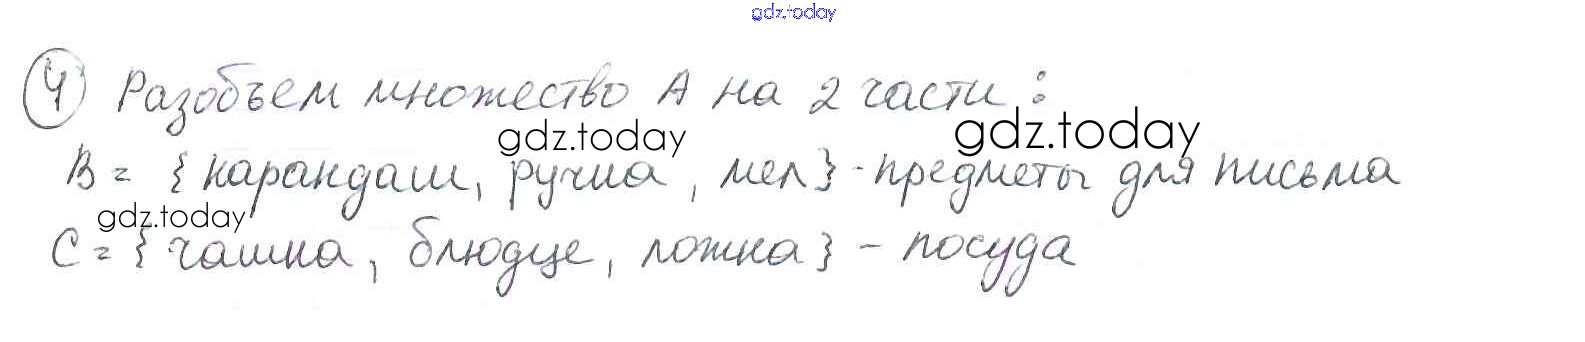 gdz.today
4 Разобьем множество А на 2 части:
gdz.today gdz.today
В = {карандаш, ручка, мел} - предметы для письма
gdz.today
С = {чашка, блюдце, ложка} - посуда